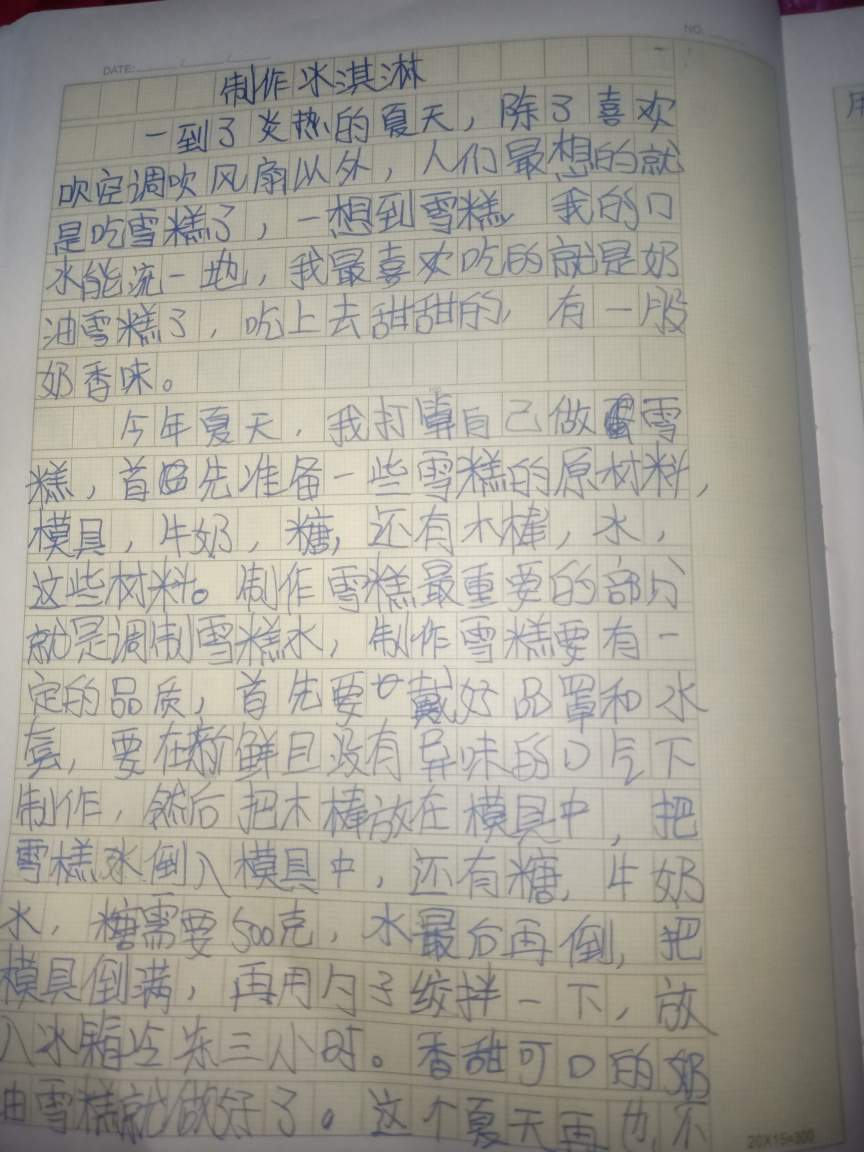 DATE: / /
NO.
制作冰淇淋
一到了炎热的夏天，除了喜欢
吹空调吹风扇以外，人们最想的就
是吃雪糕了，一想到雪糕，我的口
水能流一地，我最喜欢吃的就是奶
油雪糕了，吃上去甜甜的，有一股
奶香味。
今年夏天，我打算自己做雪
糕，首先准备一些雪糕的原材料，
模具，牛奶，糖，还有木棒，水，
这些材料。制作雪糕最重要的部分
就是调制雪糕水，制作雪糕要有一
定的品质，首先要戴好口罩和水
，要在新鲜且没有异味的口气下
制作，然后把木棒放在模具中，把
雪糕水倒入模具中，还有糖，牛奶
水，糖需要500克，水最后再倒，把
模具倒满，再用勺子绞拌一下，放
入冰箱冷冻三小时。香甜可口的奶
油雪糕就做好了。这个夏天再也不
20X15=300
用